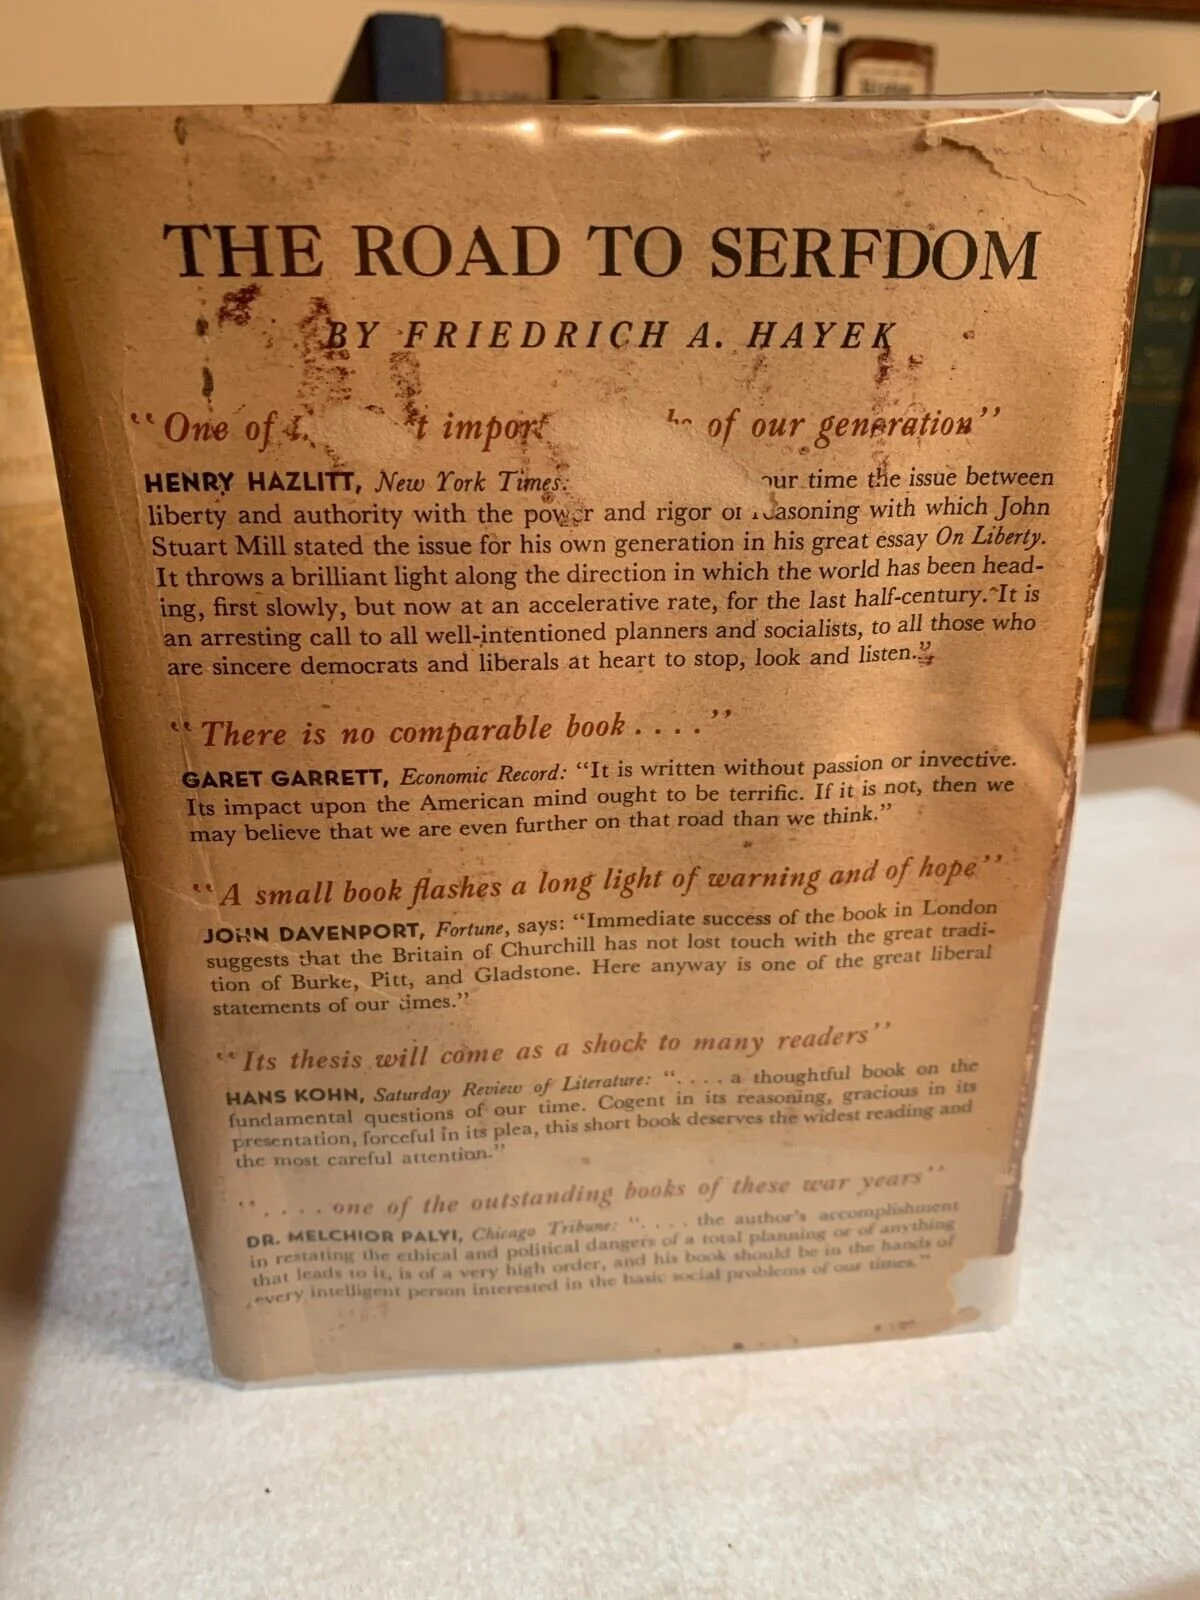 THE ROAD TO SERFDOM
BY FRIEDRICH A. HAYEK
“One of of our generation”
HENRY HAZLITT, New York Times: our time the issue between
liberty and authority with the power and rigor of reasoning with which John
Stuart Mill stated the issue for his own generation in his great essay On Liberty.
It throws a brilliant light along the direction in which the world has been head-
ing, first slowly, but now at an accelerative rate, for the last half-century. It is
an arresting call to all well-intentioned planners and socialists, to all those who
are sincere democrats and liberals at heart to stop, look and listen.”
“There is no comparable book . . . .”
GARET GARRETT, Economic Record: “It is written without passion or invective.
Its impact upon the American mind ought to be terrific. If it is not, then we
may believe that we are even further on that road than we think.”
“A small book flashes a long light of warning and of hope”
JOHN DAVENPORT, Fortune, says: “Immediate success of the book in London
suggests that the Britain of Churchill has not lost touch with the great tradi-
tion of Burke, Pitt, and Gladstone. Here anyway is one of the great liberal
statements of our times.”
“Its thesis will come as a shock to many readers”
HANS KOHN, Saturday Review of Literature: “. . . . a thoughtful book on the
fundamental questions of our time. Cogent in its reasoning, gracious in its
presentation, forceful in its plea, this short book deserves the widest reading and
the most careful attention.”
“. . . . one of the outstanding books of these war years”
DR. MELCHIOR PALYI, Chicago Tribune: “. . . . the author's accomplishment
in restating the ethical and political dangers of a total planning or of anything
that leads to it, is of a very high order, and his book should be in the hands of
every intelligent person interested in the basic social problems of our times.”